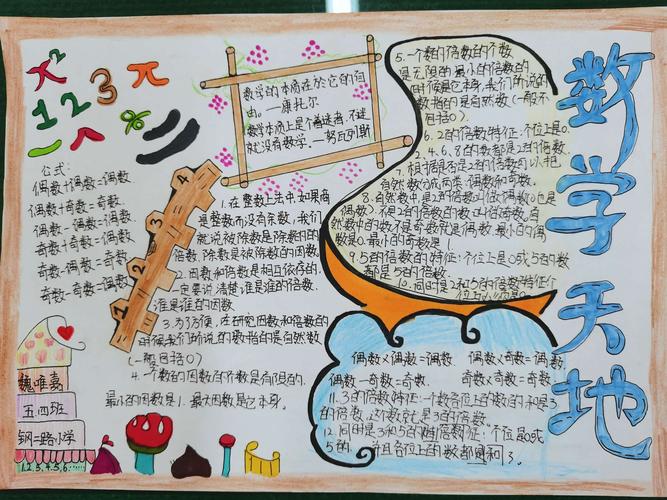 数学天地
π²
1 2 3 π
%
数学的本质在於它的自
由。—康托尔
数学本质上是个普遍者,不迷
就没有数学。—努瓦列斯
公式:
偶数+偶数=偶数
偶数+奇数=奇数
偶数-偶数=偶数
奇数+奇数=偶数
奇数-偶数=奇数
奇数-奇数=偶数
1 2 3 4
1.在整数上法中,如果商
是整数而没有余数,我们
就说被除数是除数的
倍数,除数是被除数的因数。
2.因数和倍数是相互依存的,
一定要说清楚谁是谁的倍数.
谁是谁的因数.
3.为了方便,在研究因数和倍数的
时候,我们所说的数指的是自然数
(一般不包括0)
4.一个数的因数的个数是有限的.
最小的因数是1.最大因数是它本身。
5.一个数的倍数的个数
是无限的,最小的倍数的
时候是它本身,我们所说的
数指的是自然数(一般不
包括0).
6.2的倍数特征:个位上是0.
2.4.6.8的数都是2的倍数.
7.根据是否是2的倍数可以把
自然数分成两类:偶数和奇数.
8.自然数中,是2的倍数叫做偶数(0也是
偶数).不是2的倍数的数叫做奇数.自
然数中的数不是奇数就是偶数,最小的偶
数是0.最小的奇数是1.
9.5的倍数的特征:个位上是0或5的数
都是5的倍数.
10.同时是2和5的倍数特征:个
位上必须是0
偶数×偶数=偶数 偶数×奇数=偶数
偶数-奇数=奇数. 奇数×奇数=奇数
11.3的倍数特征:一个数各位上的数的和是3
的倍数.这个数就是3的倍数.
12.同时是3和5的倍数特征:个位是0或
5的,并且各位上的数都
魏唯嘉
五四班
钢二路小学
1.2.3.4.5.6:……